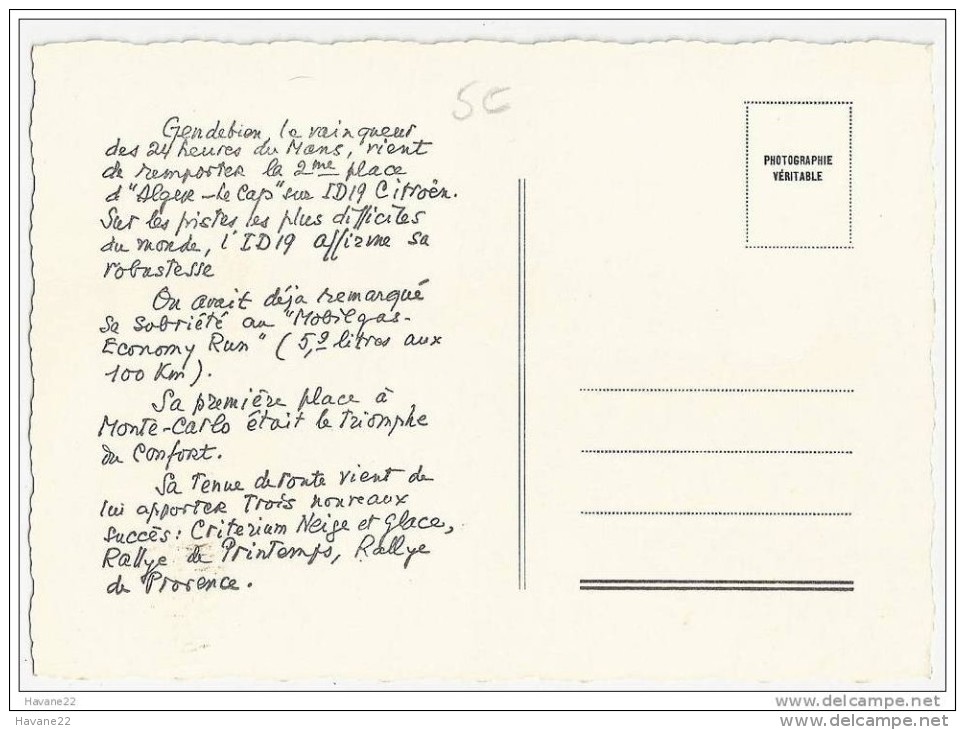 5€
Gendebien, le vainqueur
des 24 heures du Mans, vient
de remporter la 2me place
d'"Alger-Le Cap" sur ID19 Citroën.
Sur les pistes les plus difficiles
du monde, l'ID19 affirme sa
robustesse
On avait déja remarqué
sa sobriété au "Mobilgas-
Economy Run" (5,9 litres aux
100 Km).
Sa première place à
Monte-Carlo était le triomphe
du Confort.
Sa tenue de route vient de
lui apporter trois nouveaux
succès: Criterium Neige et Glace,
Rallye de Printemps, Rallye
de Provence.
PHOTOGRAPHIE
VÉRITABLE
Havane22
www.delcampe.net
Havane22
www.delcampe.net